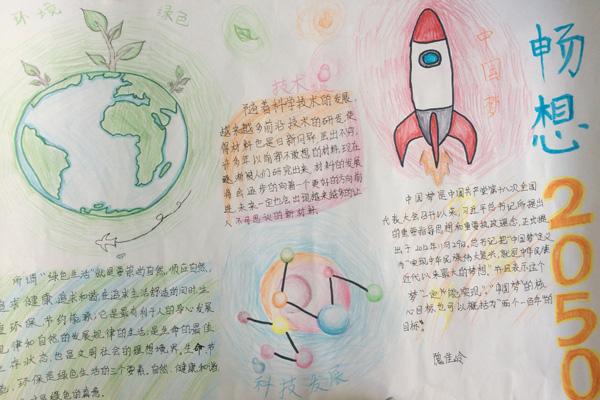 环境
绿色
技术
中国梦
畅想
2050
随着科学技术的发展,
越来越多前沿技术的研发,使
得材料也是日新月异,层出不穷,
许多年以前都不敢想的材料,现在
逐渐被人们研究出来,材料的发展
将会逐步的向着一个更好的方向前
进,未来一定也会出现越来越多的让
人不可思议的新材料.
中国梦是中国共产党第十八次全国
代表大会召开以来,习近平总书记所提出
的重要指导思想和重要执政理念,正式提
出于2012年11月29日.总书记把"中国梦"定义
为"实现中华民族伟大复兴,就是中华民族
近代以来最大的梦想",并且表示这个
梦"一定能实现"."中国梦"的核
心目标也可以概括为"两个一百年"的
目标.
所谓"绿色生活"就是要崇尚自然,顺应自然,
追求健康,追求和谐,在追求生活舒适的同时,注
重环保,节约能源,它是最有利于人的身心发展
规律和自然的发展规律的生活;是生命的最佳
存状态,也是文明社会的理想境界.生命、节
环保是绿色生活的三个要素.自然、健康和谐
是绿色的真意.
科技发展